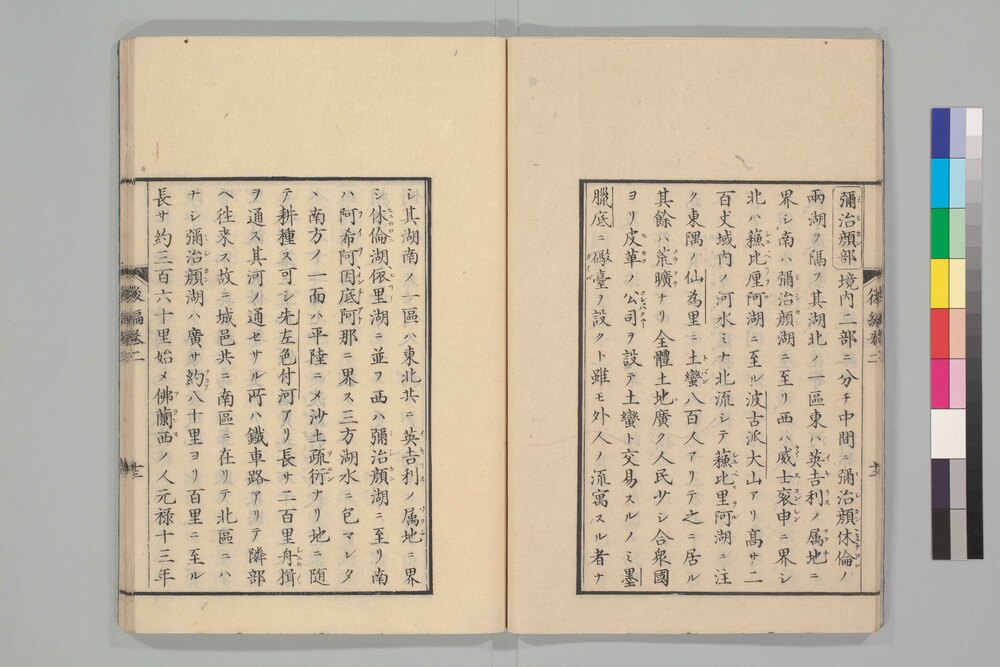 彌治顔部境内二部ニ分チ中間ニ彌治顔休倫ノ
兩湖ヲ隔ツ其湖北ノ一區東ハ英吉利ノ属地ニ
界シ南ハ彌治顔湖ニ至リ西ハ威士衮申ニ界シ
北ハ蘓比厘阿湖ニ至ル波古派大山アリ高サ二
百丈域内ノ河水ミナ北流シテ蘓比里阿湖ニ注
ク東隅ノ仙為里ニ土蠻八百人アリテ之ニ居ル
其餘ハ荒曠ナリ全體土地廣ク人民少シ合衆國
ヨリ皮革ノ公司ヲ設テ土蠻ト交易スルノミ墨
臘底ニ礟臺ヲ設クト雖モ外人ノ流寓スル者ナ
後編巻二
シ其湖南ノ一區ハ東北共ニ英吉利ノ属地ニ界
シ休倫湖依里湖ニ並フ西ハ彌治顔湖ニ至リ南
ハ阿希阿因底阿那ニ界ス三方湖水ニ包マレタ
丶南方ノ一面ハ平陸ニメ沙土疏衍ナリ地ニ随
テ耕種ス可シ先左色付河アリ長サ二百里舟揖
ヲ通ス其河ノ通セサル所ハ鐵車路アリテ隣部
ヘ往来ス故ニ城邑共ニ南區ニ在リテ北區ニハ
ナシ彌治顔湖ハ廣サ約八十里ヨリ百里ニ至ル
長サ約三百六十里始メ佛蘭西ノ人元禄十三年
後編巻二